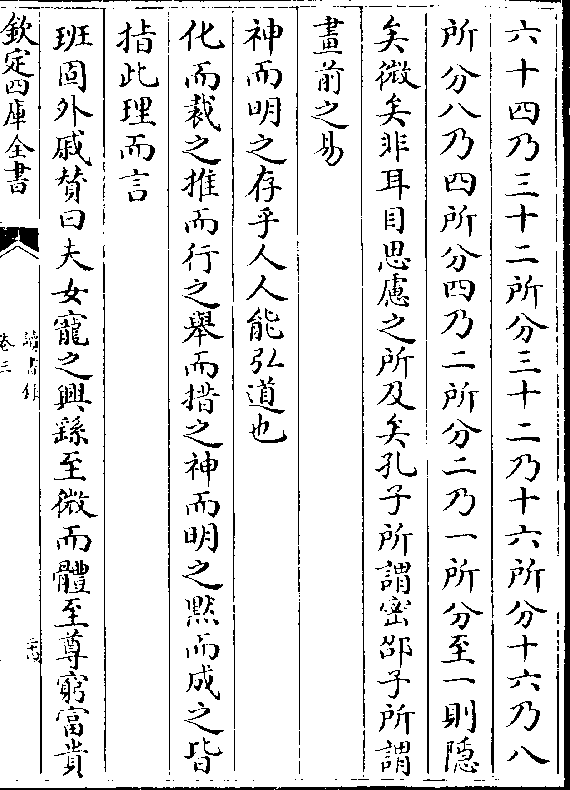 六十四乃三十二所分三十二乃十六所分十六乃八
所分八乃四所分四乃二所分二乃一所分至一則隱
矣微矣非耳目思慮之所及矣孔子所謂密邵子所謂
畫前之易
神而明之存乎人人能弘道也
化而裁之推而行之舉而措之神而明之黙而成之皆
指此理而言
班固外戚賛曰夫女寵之興繇至微而體至尊窮富貴
欽定四庫全書
讀書錄
卷三